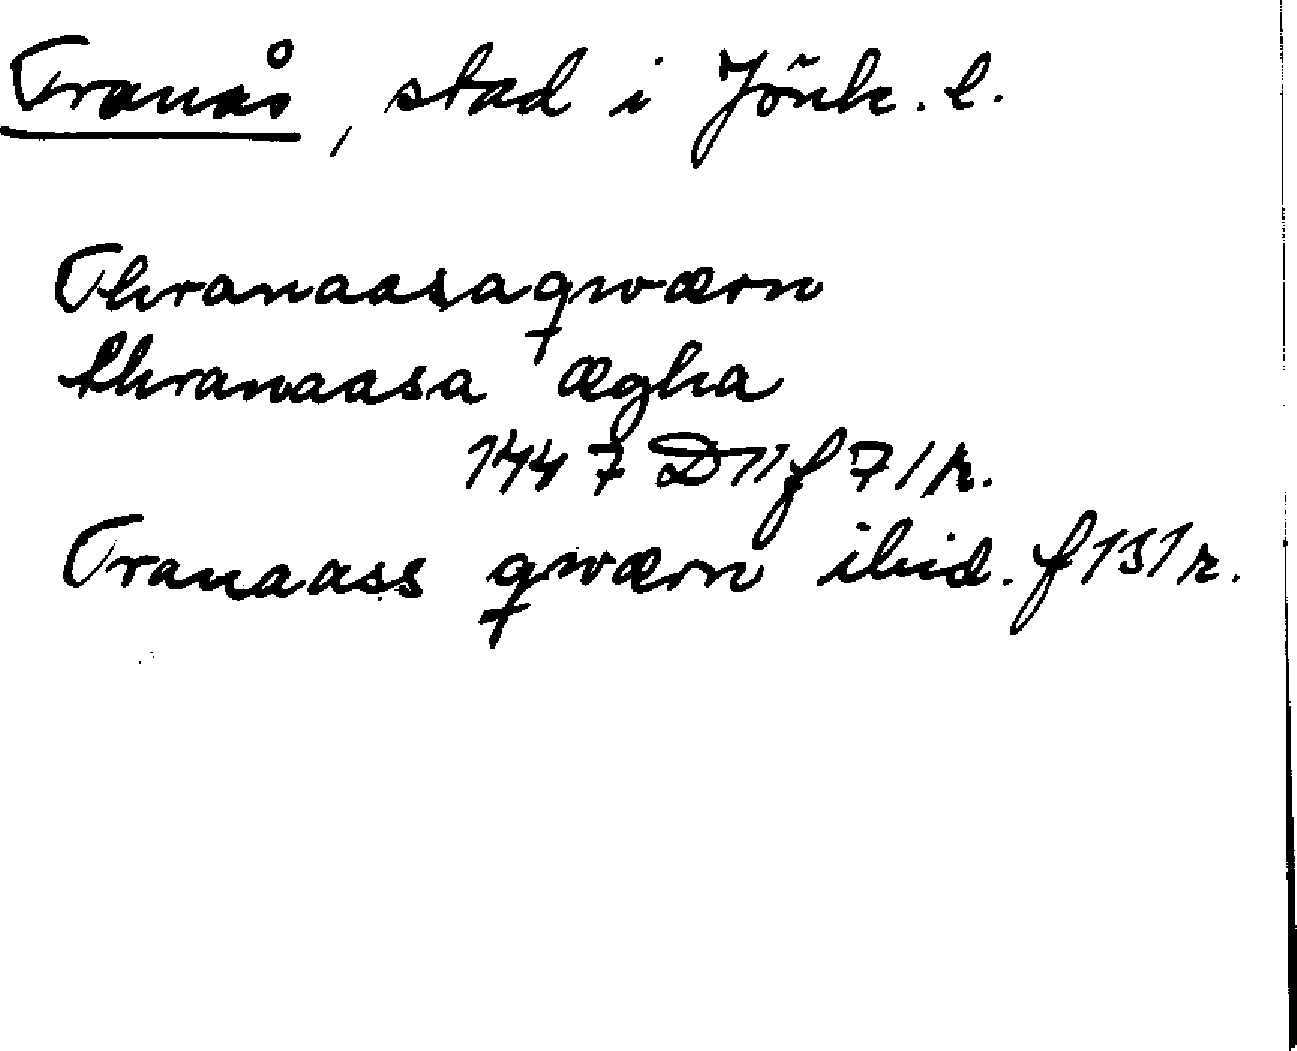 Tranås, stad i Jönk. l.
Thranaasaqwærn
thranaasa ægha
1447 D11 f 71 r.
Tranaass qwærn ibid. f 151 r.